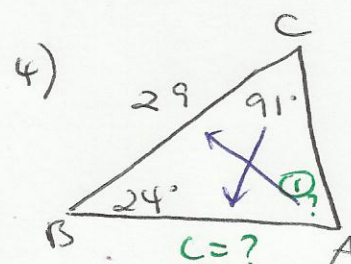 4)
C
29
91°
24°
① ?
B
A
C = ?